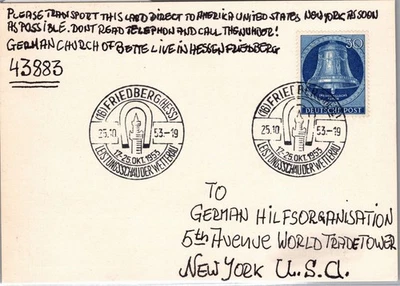 PLEASE TRANSPORT THIS CARD DIRECT TO AMERIKA UNITED STATES NEW YORK AS SOON
AS POSSIBLE. DONT READ TELEPHON AND CALL THE NUMBER!
GERMAN CHURCH OF BETTE LIVE IN HESSEN FRIEDBERG
43883
30
DEUTSCHE POST
(16) FRIEDBERG (HESS)
25.10 53-19
17-25. OKT. 1953
LEISTUNGSSCHAU DER WETTERAU
(16) FRIEDBERG
25.10 53-19
17-25. OKT. 1953
LEISTUNGSSCHAU DER WETTERAU
TO
GERMAN HILFSORGANISATION
5th AVENUE WORLD TRADE TOWER
NEW YORK U.S.A.